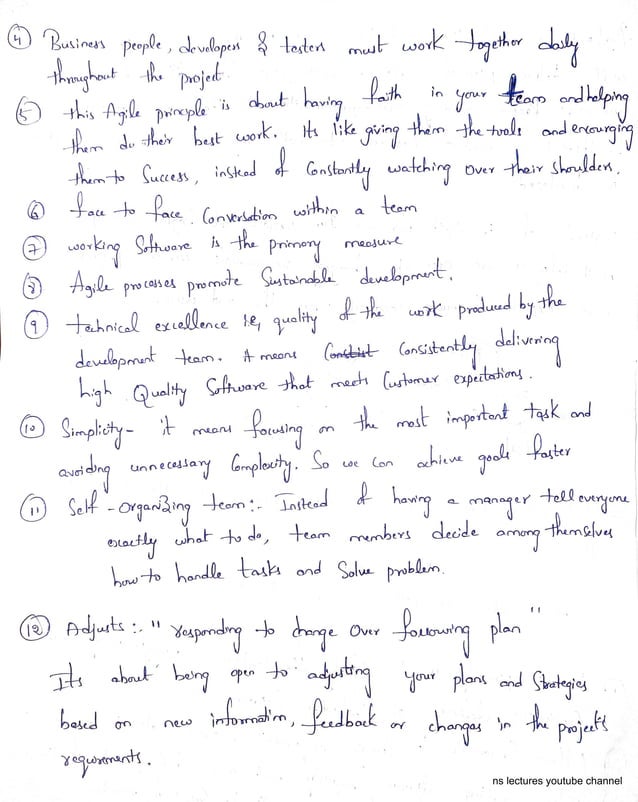 ④ Business people, developers & testers must work together daily
throughout the project.
⑤ this Agile principle is about having faith in your team and helping
them do their best work. Its like giving them the tools and encouraging
them to Success, instead of Constantly watching over their shoulders.
⑥ face to face Conversation within a team
⑦ working Software is the primary measure
⑧ Agile processes promote Sustainable development.
⑨ technical excellence ie, quality of the work produced by the
development team. it means Consistently delivering
high Quality Software that meets Customer expectations.
⑩ Simplicity - it means focusing on the most important task and
avoiding unnecessary Complexity. So we can achieve goals faster
⑪ Self-organizing team:- Instead of having a manager tell everyone
exactly what to do, team members decide among themselves
how to handle tasks and Solve problem.
⑫ Adjusts:- "responding to change over following plan"
Its about being open to adjusting your plans and Strategies
based on new information, feedback or changes in the project's
requirements.
ns lectures youtube channel